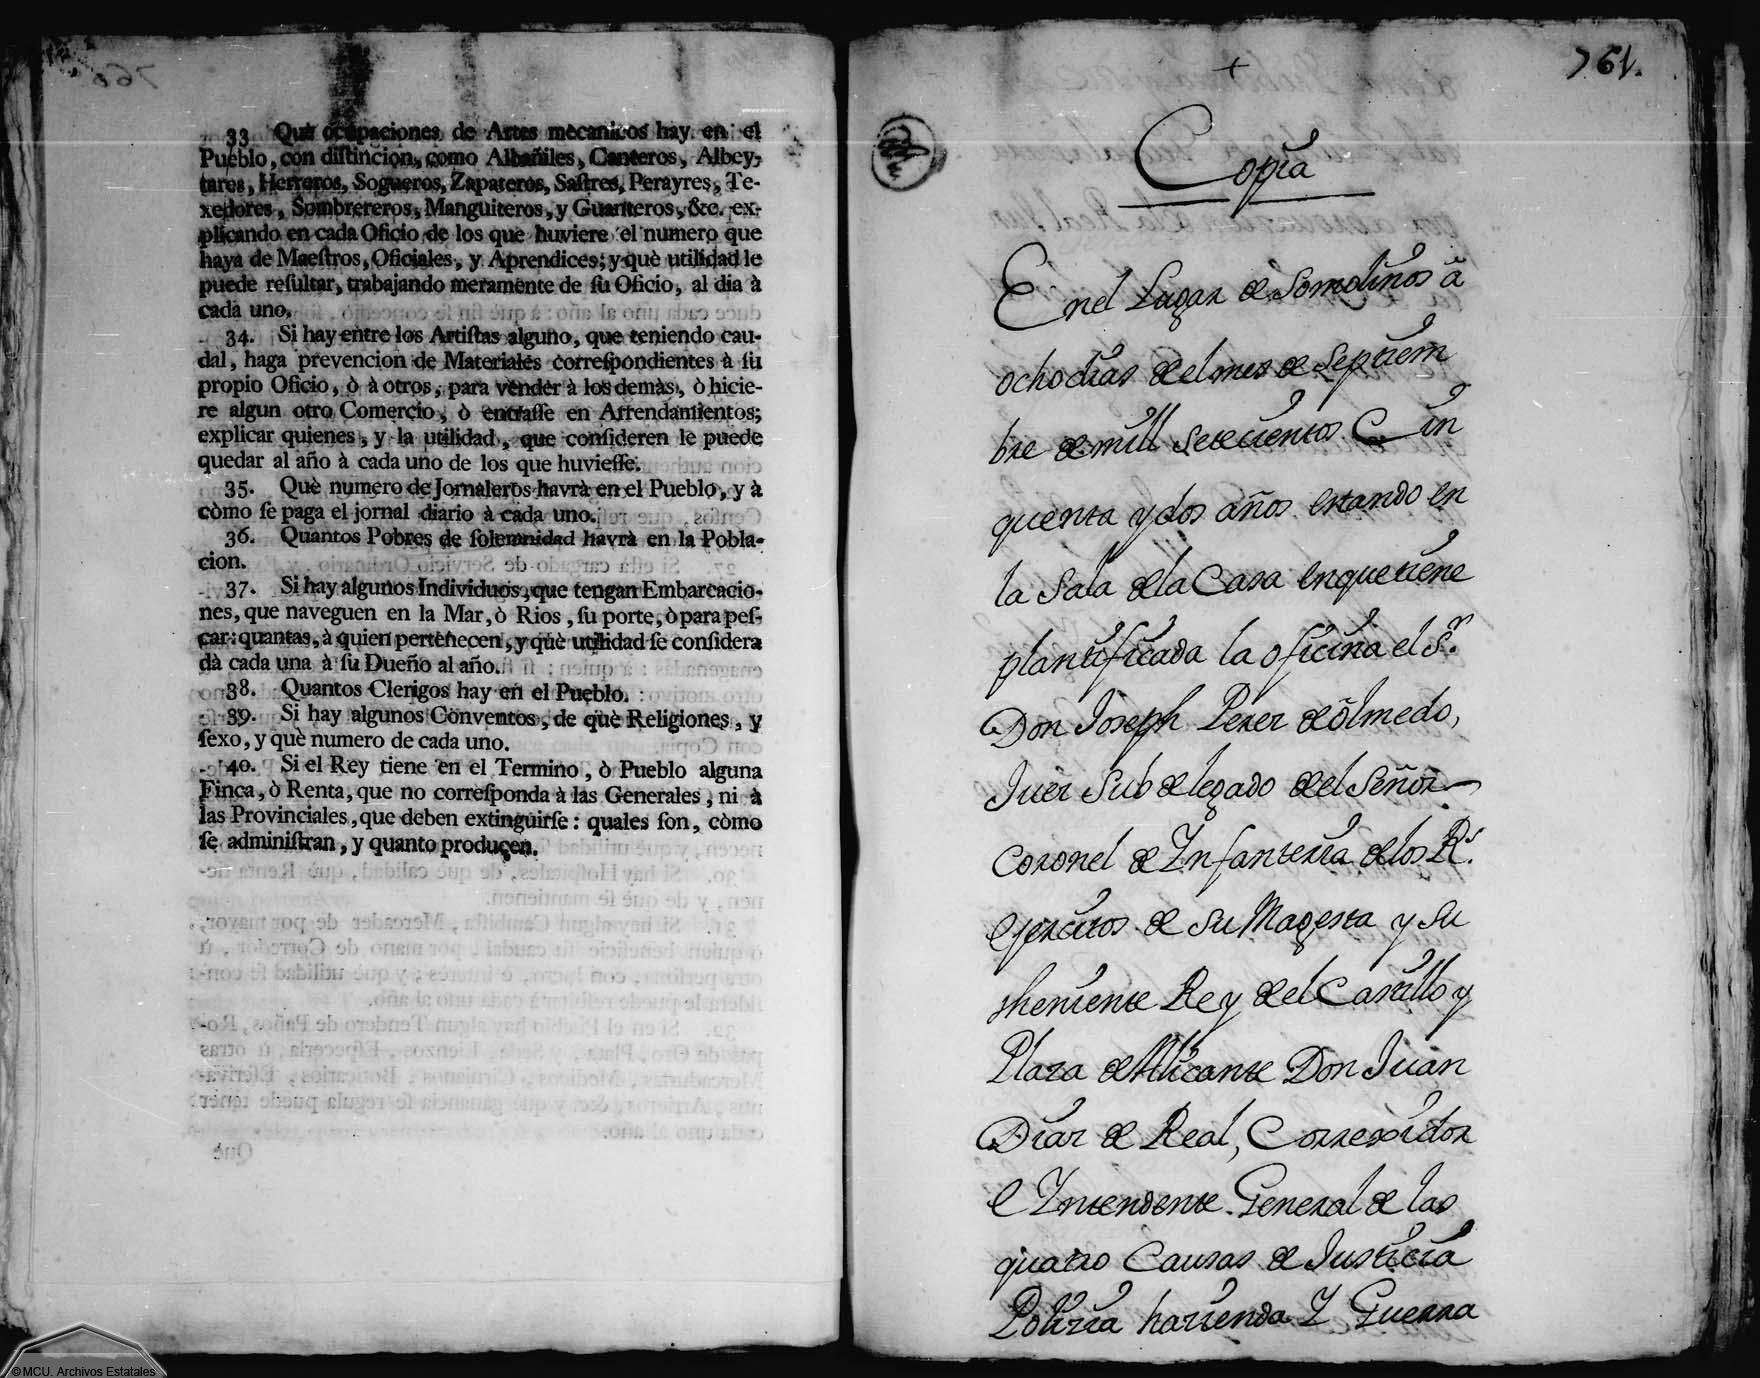 33. Què ocupaciones de Artes mecanicos hay en el
Pueblo, con diſtincion, como Albañiles, Canteros, Albey-
tares, Herreros, Sogueros, Zapateros, Saſtres, Perayres, Te-
xedores, Sombrereros, Manguiteros, y Guanteros, &c. ex-
plicando en cada Oficio de los que huviere el numero que
haya de Maeſtros, Oficiales, y Aprendices; y què utilidad le
puede reſultar, trabajando meramente de ſu Oficio, al dia à
cada uno.
34. Si hay entre los Artiſtas alguno, que teniendo cau-
dal, haga prevencion de Materiales correſpondientes à ſu
propio Oficio, ò à otros, para vender à los demàs, ò hicie-
re algun otro Comercio, ò entraſſe en Arrendamientos;
explicar quienes, y la utilidad, que conſideren le puede
quedar al año à cada uno de los que huvieſſe.
35. Què numero de Jornaleros havrà en el Pueblo, y à
còmo ſe paga el jornal diario à cada uno.
36. Quantos Pobres de ſolemnidad havrà en la Pobla-
cion.
37. Si hay algunos Individuos, que tengan Embarcacio-
nes, que naveguen en la Mar, ò Rios, ſu porte, ò para peſ-
car: quantas, à quien pertenecen, y què utilidad ſe conſidera
dà cada una à ſu Dueño al año.
38. Quantos Clerigos hay en el Pueblo.
39. Si hay algunos Conventos, de què Religiones, y
ſexo, y què numero de cada uno.
40. Si el Rey tiene en el Termino, ò Pueblo alguna
Finca, ò Renta, que no correſponda à las Generales, ni à
las Provinciales, que deben extinguirſe: quales ſon, còmo
ſe adminiſtran, y quanto producen.
761.
Copia
En el Lugar de Somolinos â
ocho dias de el mes de Septiem
bre de mill setecientos Cin
quenta y dos años estando en
la Sala de la Casa en que tiene
plantificada la oficina el S.r
Don Joseph Perez de ôlmedo,
Juez Subdelegado de el Señor
Coronel de Infanteria de los R.s
exercitos de Su Magesta y Su
theniente Rey de el Castillo y
Plaza de Alicante Don Juan
Diaz de Real, Correxidor
e Yntendente General de las
quatro Causas de Justicia
Polizia hazienda Y Guerra
© MCU. Archivos Estatales